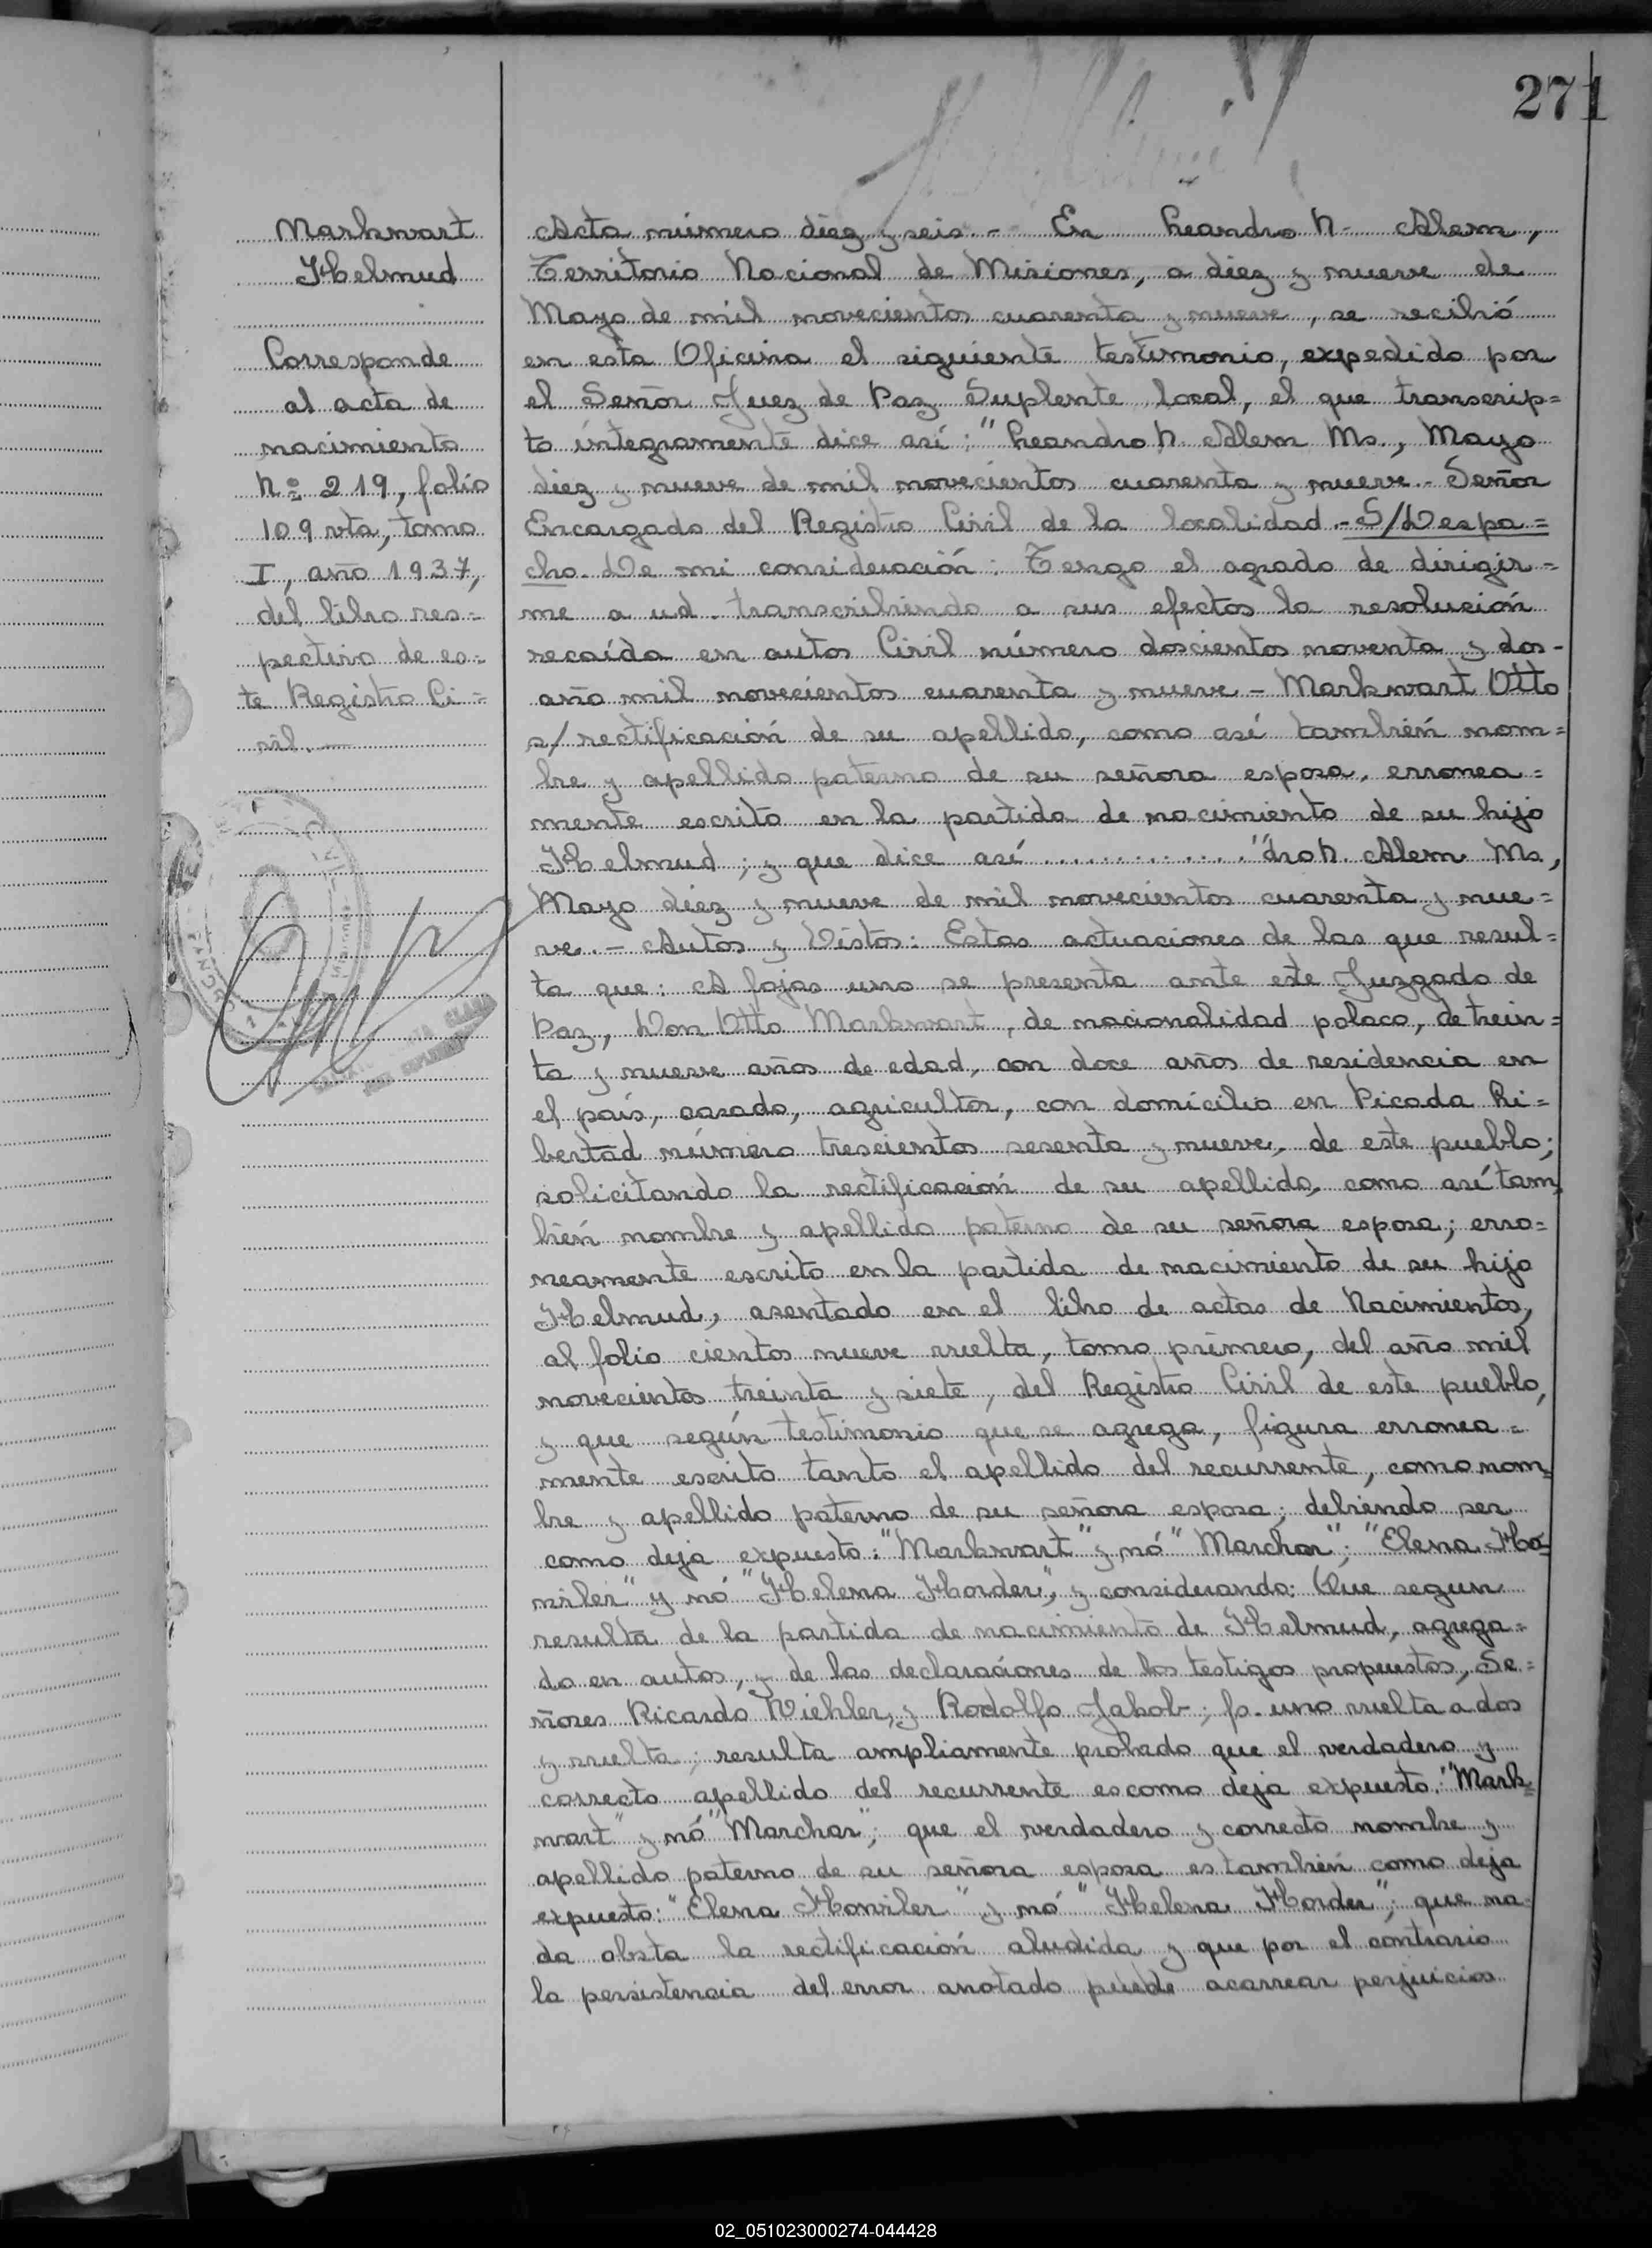 271
Markwart
Helmud
Corresponde
al acta de
nacimiento
Nº 219, folio
109 vta, tomo
I, año 1937,
del libro res=
pectivo de es=
te Registro Ci=
vil.—
Acta número diez y seis.- En Leandro N. Alem,
Territorio Nacional de Misiones, a diez y nueve de
Mayo de mil novecientos cuarenta y nueve, se recibió
en esta Oficina el siguiente testimonio, expedido por
el Señor Juez de Paz Suplente local, el que transcrip=
to íntegramente dice así: "Leandro N. Alem Ms., Mayo
diez y nueve de mil novecientos cuarenta y nueve.- Señor
Encargado del Registro Civil de la localidad.- S/Despa=
cho. De mi consideración: Tengo el agrado de dirigir=
me a ud. transcribiendo a sus efectos la resolución
recaída en autos Civil número doscientos noventa y dos-
año mil novecientos cuarenta y nueve - Markwart Otto
s/rectificación de su apellido, como así también nom=
bre y apellido paterno de su señora esposa, erronea=
mente escrito en la partida de nacimiento de su hijo
Helmud; y que dice así .............. "dro N. Alem Ms,
Mayo diez y nueve de mil novecientos cuarenta y nue=
ve.- Autos y Vistos: Estas actuaciones de las que resul=
ta que: A fojas uno se presenta ante este Juzgado de
Paz, Don Otto Markwart, de nacionalidad polaco, de trein=
ta y nueve años de edad, con doce años de residencia en
el país, casado, agricultor, con domicilio en Picada Li=
bertad número trescientos sesenta y nueve, de este pueblo;
solicitando la rectificación de su apellido, como así tam
bién nombre y apellido paterno de su señora esposa; erro=
neamente escrito en la partida de nacimiento de su hijo
Helmud, asentado en el libro de actas de Nacimientos,
al folio cientos nueve vuelta, tomo primero, del año mil
novecientos treinta y siete, del Registro Civil de este pueblo,
y que según testimonio que se agrega, figura erronea=
mente escrito tanto el apellido del recurrente, como nom=
bre y apellido paterno de su señora esposa; debiendo ser
como deja expuesto: "Markwart" y nó "Marchar"; "Elena Ho=
nviler" y nó "Helena Horder", y considerando: Que segun
resulta de la partida de nacimiento de Helmud, agrega=
da en autos, y de las declaraciones de los testigos propuestos, Se=
ñores Ricardo Wiehler, y Rodolfo Jakob-; fs. uno vuelta a dos
y vuelta; resulta ampliamente probado que el verdadero y
correcto apellido del recurrente es como deja expuesto: "Mark=
wart" y nó "Marchar"; que el verdadero y correcto nombre y
apellido paterno de su señora esposa es también como deja
expuesto: "Elena Honviler" y nó "Helena Horder"; que na=
da obsta la rectificación aludida y que por el contrario
la persistencia del error anotado puede acarrear perjuicios
02_051023000274-044428